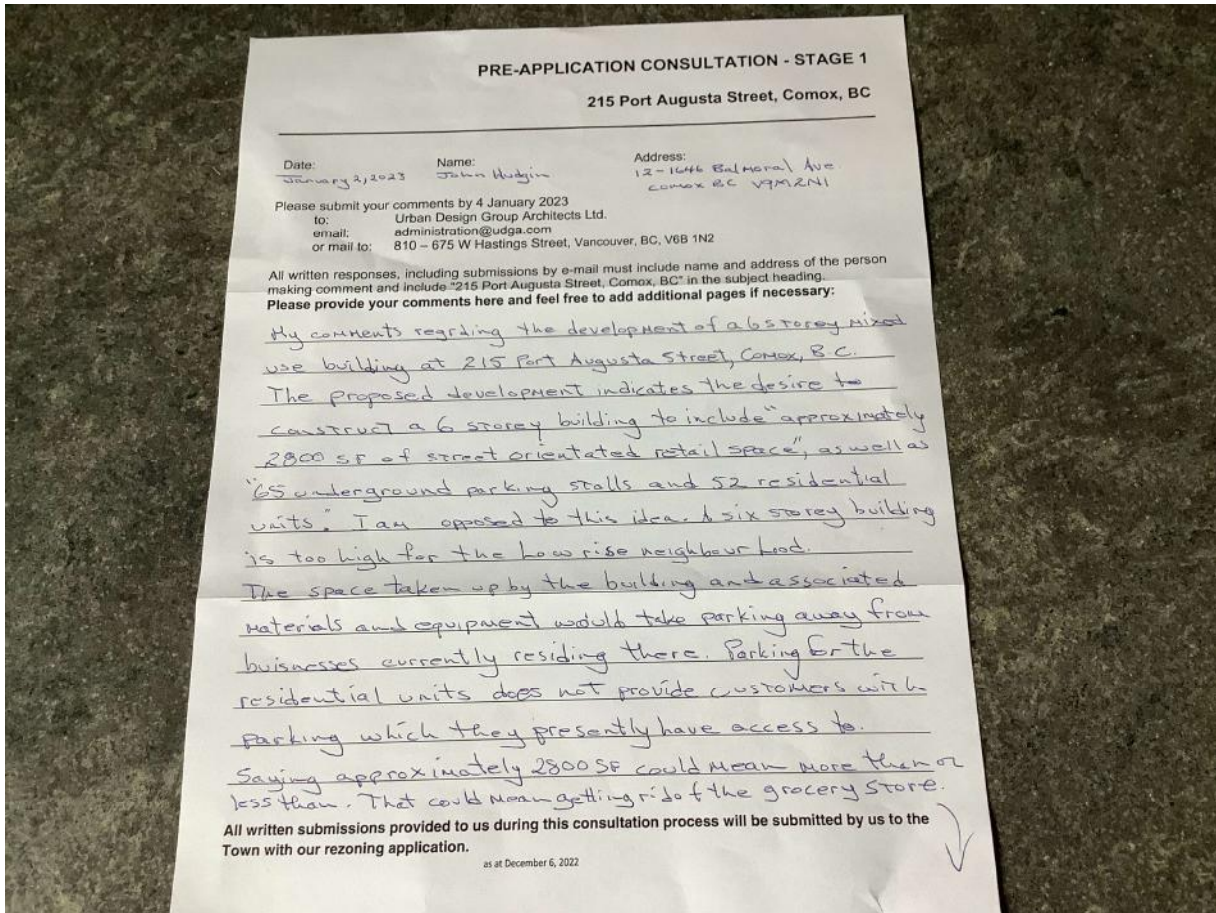 PRE-APPLICATION CONSULTATION - STAGE 1
215 Port Augusta Street, Comox, BC
Date: Name: Address:
January 2, 2023 John Hudgin 12-1646 Balmoral Ave.
Comox BC V9M2N1
Please submit your comments by 4 January 2023
to: Urban Design Group Architects Ltd.
email: administration@udga.com
or mail to: 810 – 675 W Hastings Street, Vancouver, BC, V6B 1N2
All written responses, including submissions by e-mail must include name and address of the person
making comment and include "215 Port Augusta Street, Comox, BC" in the subject heading.
Please provide your comments here and feel free to add additional pages if necessary:
My comments regrding the development of a 6 storey mixed
use building at 215 Port Augusta Street, Comox, B.C.
The proposed development indicates the desire to
construct a 6 storey building to include "approximately
2800 SF of street orientated retail space", as well as
"65 underground parking stalls and 52 residential
units." I am opposed to this idea. A six storey building
is too high for the low rise neighbourhood.
The space taken up by the building and associated
materials and equipment would take parking away from
buisnesses currently residing there. Parking for the
residential units does not provide customers with
parking which they presently have access to.
Saying approximately 2800 SF could mean more than or
less than. That could mean getting rid of the grocery store.
All written submissions provided to us during this consultation process will be submitted by us to the
Town with our rezoning application.
as at December 6, 2022